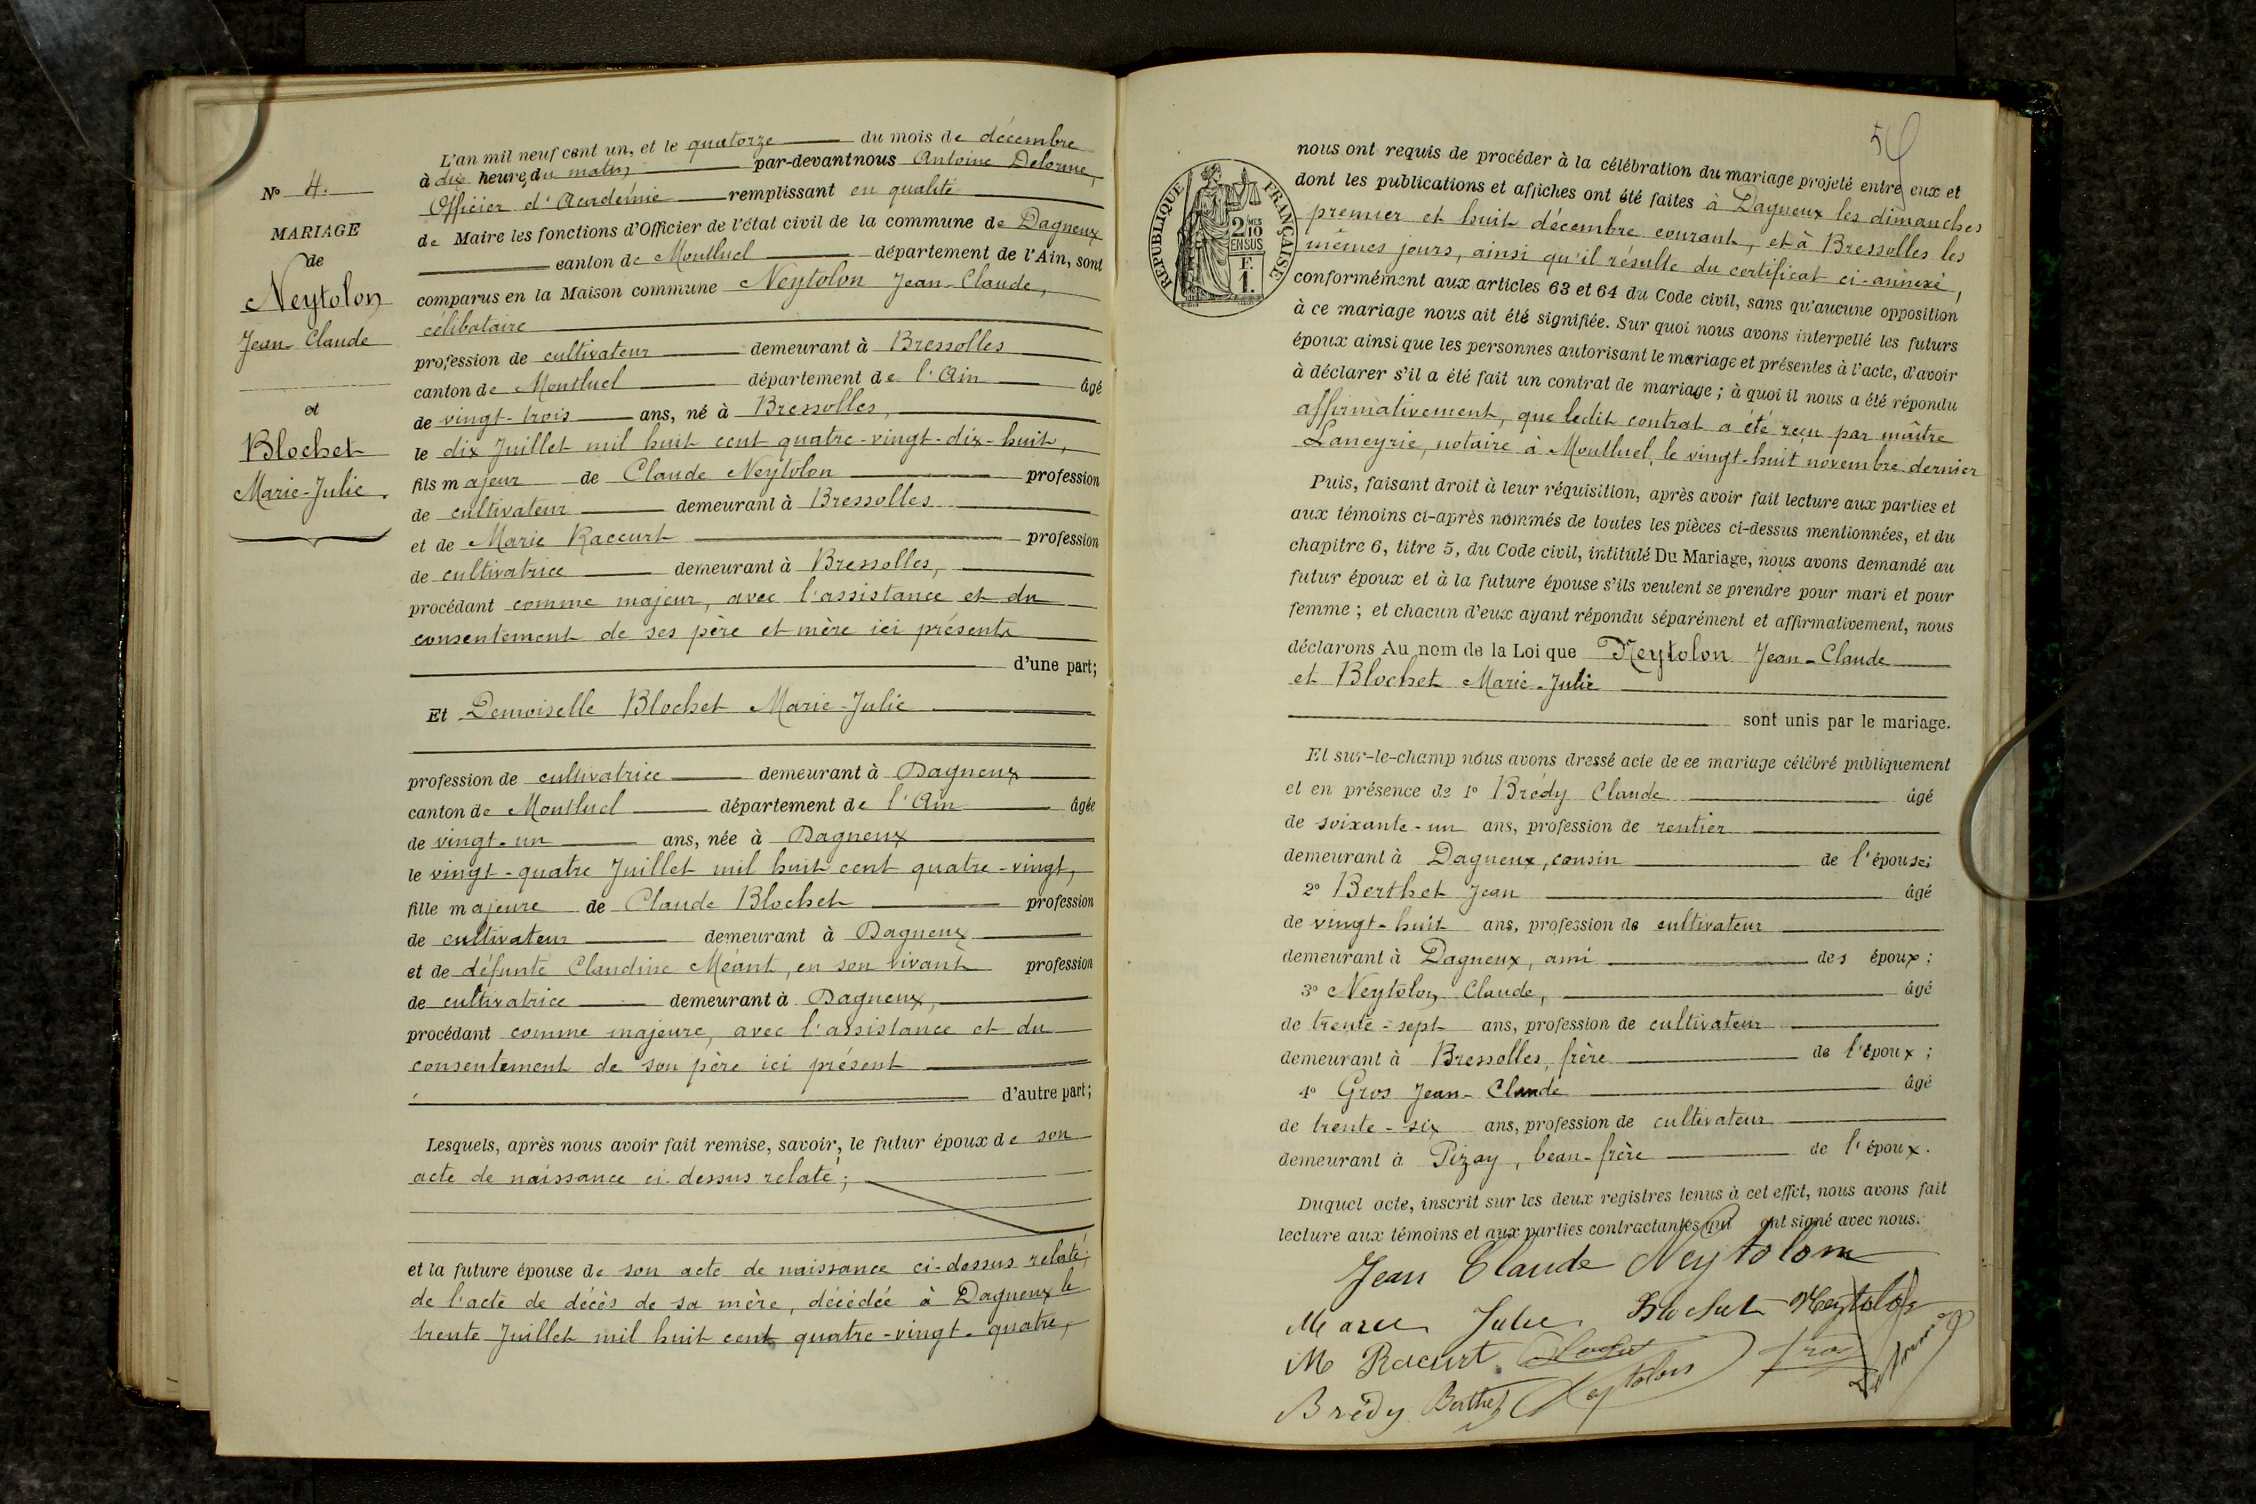 N° 4.
MARIAGE
de
Neytolon
Jean-Claude
et
Blochet
Marie-Julie.
L'an mil neuf cent un, et le quatorze du mois de décembre
à dix heure, du matin, par-devant nous Antoine Delorme,
Officier d'Académie remplissant en qualité
de Maire les fonctions d'Officier de l'état civil de la commune de Dagneux
canton de Montluel département de l'Ain, sont
comparus en la Maison commune Neytolon Jean-Claude,
célibataire
profession de cultivateur demeurant à Bressolles
canton de Montluel département de l'Ain âgé
de vingt-trois ans, né à Bressolles,
le dix Juillet mil huit cent quatre-vingt-dix-huit,
fils majeur de Claude Neytolon profession
de cultivateur demeurant à Bressolles
et de Marie Raccurt profession
de cultivatrice demeurant à Bressolles,
procédant comme majeur, avec l'assistance et du
consentement de ses père et mère ici présents
d'une part;
Et Demoiselle Blochet Marie-Julie
profession de cultivatrice demeurant à Dagneux
canton de Montluel département de l'Ain âgée
de vingt-un ans, née à Dagneux
le vingt-quatre Juillet mil huit cent quatre-vingt,
fille majeure de Claude Blochet profession
de cultivateur demeurant à Dagneux
et de défunte Claudine Méant, en son vivant profession
de cultivatrice demeurant à Dagneux,
procédant comme majeure, avec l'assistance et du
consentement de son père ici présent
d'autre part;
Lesquels, après nous avoir fait remise, savoir, le futur époux de son
acte de naissance ci-dessus relaté;
et la future épouse de son acte de naissance ci-dessus relaté;
de l'acte de décès de sa mère, décédée à Dagneux le
trente Juillet mil huit cent quatre-vingt-quatre,
REPUBLIQUE FRANÇAISE
2/10 MES
EN SUS
F.
1.
nous ont requis de procéder à la célébration du mariage projeté entre eux et
dont les publications et affiches ont été faites à Dagneux les dimanches
premier et huit décembre courant, et à Bressolles les
mêmes jours, ainsi qu'il résulte du certificat ci-annexé,
conformément aux articles 63 et 64 du Code civil, sans qu'aucune opposition
à ce mariage nous ait été signifiée. Sur quoi nous avons interpellé les futurs
époux ainsi que les personnes autorisant le mariage et présentes à l'acte, d'avoir
à déclarer s'il a été fait un contrat de mariage; à quoi il nous a été répondu
affirmativement, que ledit contrat a été reçu par maître
Laneyrie, notaire à Montluel, le vingt-huit novembre dernier
Puis, faisant droit à leur réquisition, après avoir fait lecture aux parties et
aux témoins ci-après nommés de toutes les pièces ci-dessus mentionnées, et du
chapitre 6, titre 5, du Code civil, intitulé Du Mariage, nous avons demandé au
futur époux et à la future épouse s'ils veulent se prendre pour mari et pour
femme; et chacun d'eux ayant répondu séparément et affirmativement, nous
déclarons Au nom de la Loi que Neytolon Jean-Claude
et Blochet Marie-Julie
sont unis par le mariage.
Et sur-le-champ nous avons dressé acte de ce mariage célébré publiquement
et en présence de 1° Brédy Claude âgé
de soixante-un ans, profession de rentier
demeurant à Dagneux, cousin de l'épouse;
2° Berthet Jean âgé
de vingt-huit ans, profession de cultivateur
demeurant à Dagneux, ami des époux;
3° Neytolon Claude, âgé
de trente-sept ans, profession de cultivateur
demeurant à Bressolles, frère de l'époux;
4° Gros Jean-Claude âgé
de trente-six ans, profession de cultivateur
demeurant à Pizay, beau-frère de l'époux.
Duquel acte, inscrit sur les deux registres tenus à cet effet, nous avons fait
lecture aux témoins et aux parties contractantes qui ont signé avec nous.
Jean Claude Neytolon
Marie Julie Blochet Neytolon
M Racurt Blochet Gros
Brédy Berthet Neytolon Delorme